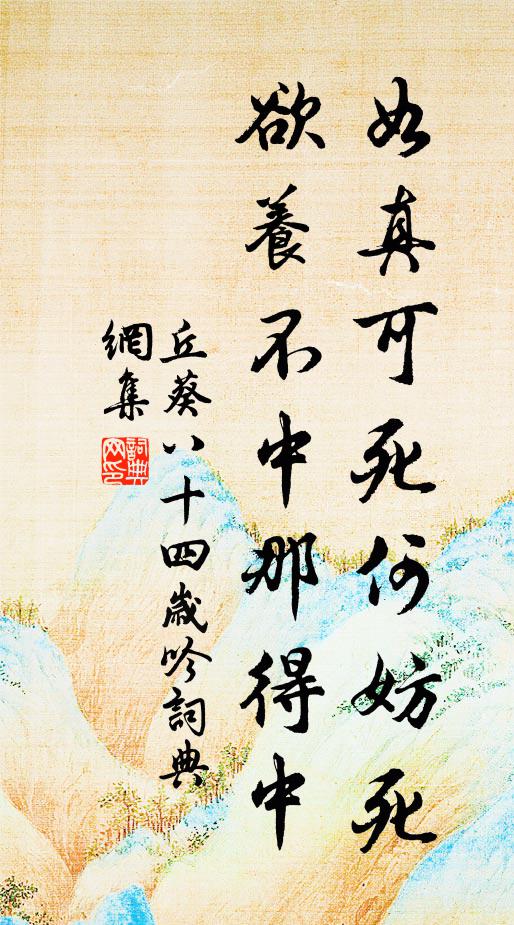 如真可死何妨死
欲養不中那得中
丘葵八十四歲吟詞典
網集
詞典
網印